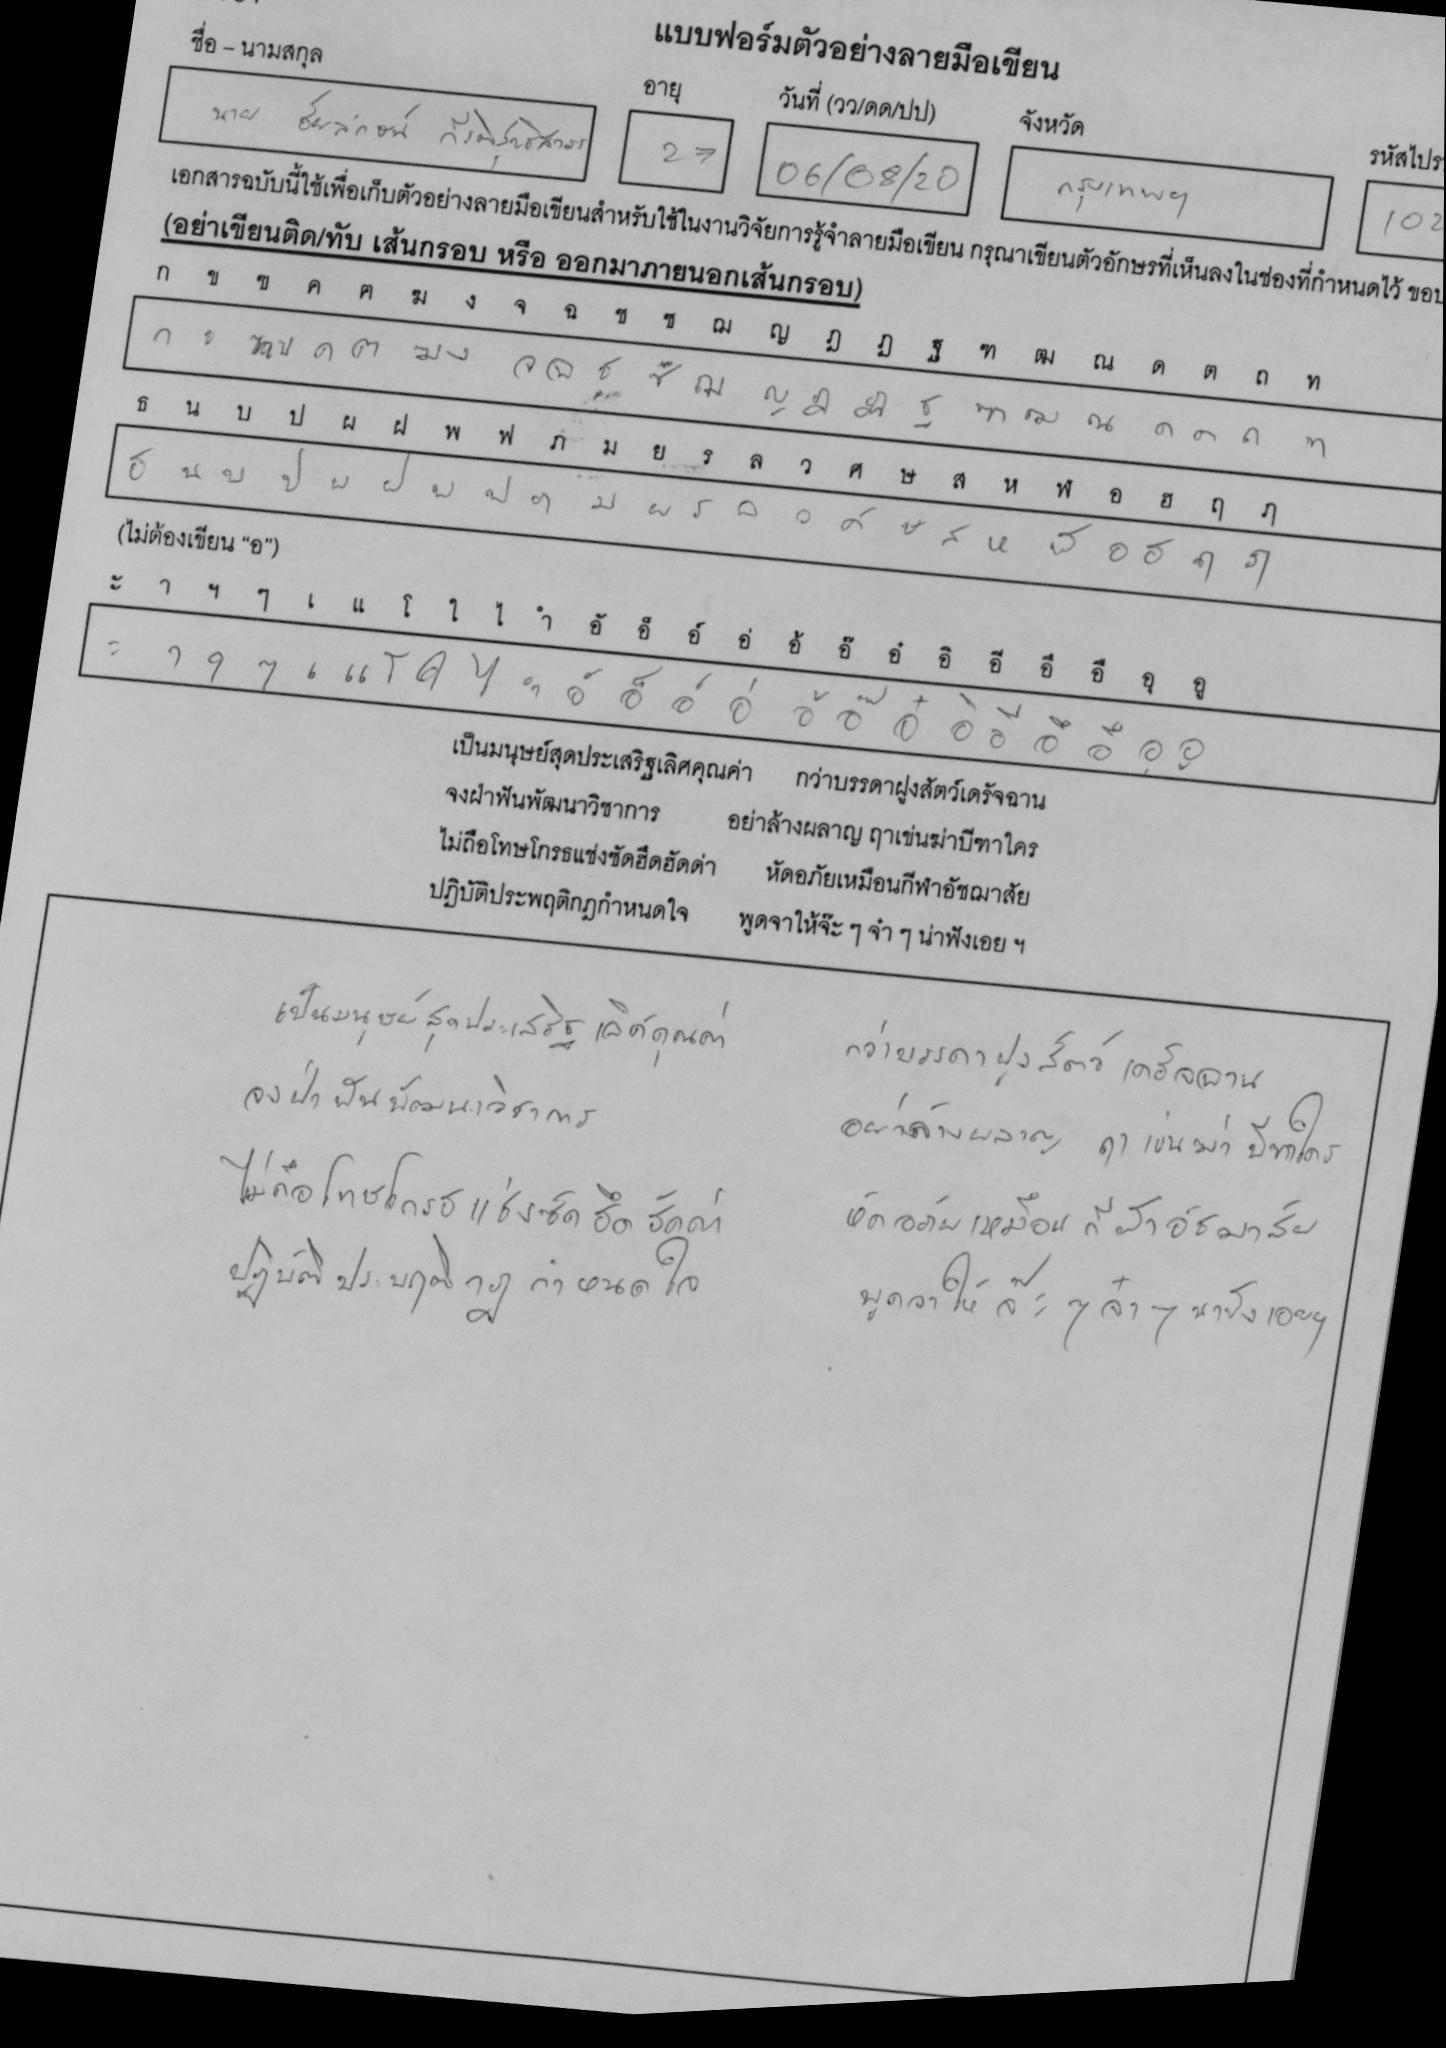 แบบฟอร์มตัวอย่างลายมือเขียน
ชื่อ – นามสกุล อายุ วันที่ (วว/ดด/ปป) จังหวัด
นาย 27 06/08/20 กรุงเทพฯ
เอกสารฉบับนี้ใช้เพื่อเก็บตัวอย่างลายมือเขียนสำหรับใช้ในงานวิจัยการรู้จำลายมือเขียน กรุณาเขียนตัวอักษรที่เห็นลงในช่องที่กำหนดไว้
(อย่าเขียนติด/ทับ เส้นกรอบ หรือ ออกมาภายนอกเส้นกรอบ)
ก ข ฃ ค ฅ ฆ ง จ ฉ ช ซ ฌ ญ ฎ ฏ ฐ ฑ ฒ ณ ด ต ถ ท
ก ข ค ฅ ฆ ง จ ฉ ช ซ ฌ ญ ฎ ฏ ฐ ฑ ฒ ณ ด ต ถ ท
ธ น บ ป ผ ฝ พ ฟ ภ ม ย ร ล ว ศ ษ ส ห ฬ อ ฮ ฤ ฦ
ธ น บ ป ผ ฝ พ ฟ ภ ม ย ร ล ว ศ ษ ส ห ฬ อ ฮ ฤ ฦ
(ไม่ต้องเขียน “อ”)
ะ า ฯ ๆ เ แ โ ใ ไ ำ อั อ็ อ์ อ่ อ้ อ๊ อ๋ อิ อี อึ อื อุ อู
ะ า ฯ ๆ เ แ โ ใ ไ ำ อั อ็ อ์ อ่ อ้ อ๊ อ๋ อิ อี อึ อื อุ อู
เป็นมนุษย์สุดประเสริฐเลิศคุณค่า กว่าบรรดาฝูงสัตว์เดรัจฉาน
จงฝ่าฟันพัฒนาวิชาการ อย่าล้างผลาญ ฤาเข่นฆ่าบีฑาใคร
ไม่ถือโทษโกรธแช่งซัดฮึดฮัดด่า หัดอภัยเหมือนกีฬาอัชฌาสัย
ปฏิบัติประพฤติกฎกำหนดใจ พูดจาให้จ๊ะ ๆ จ๋า ๆ น่าฟังเอย ฯ
เป็นมนุษย์สุดประเสริฐเลิศคุณค่า กว่าบรรดาฝูงสัตว์เดรัจฉาน
จงฝ่าฟันพัฒนาวิชาการ อย่าล้างผลาญ ฤาเข่นฆ่า บีฑาใคร
ไม่ถือโทษโกรธแช่งซัดฮึดฮัดด่า หัดอภัยเหมือนกีฬาอัชฌาสัย
ปฏิบัติประพฤติกฎกำหนดใจ พูดจาให้จ๊ะ ๆ จ๋า ๆ น่าฟังเอยฯ